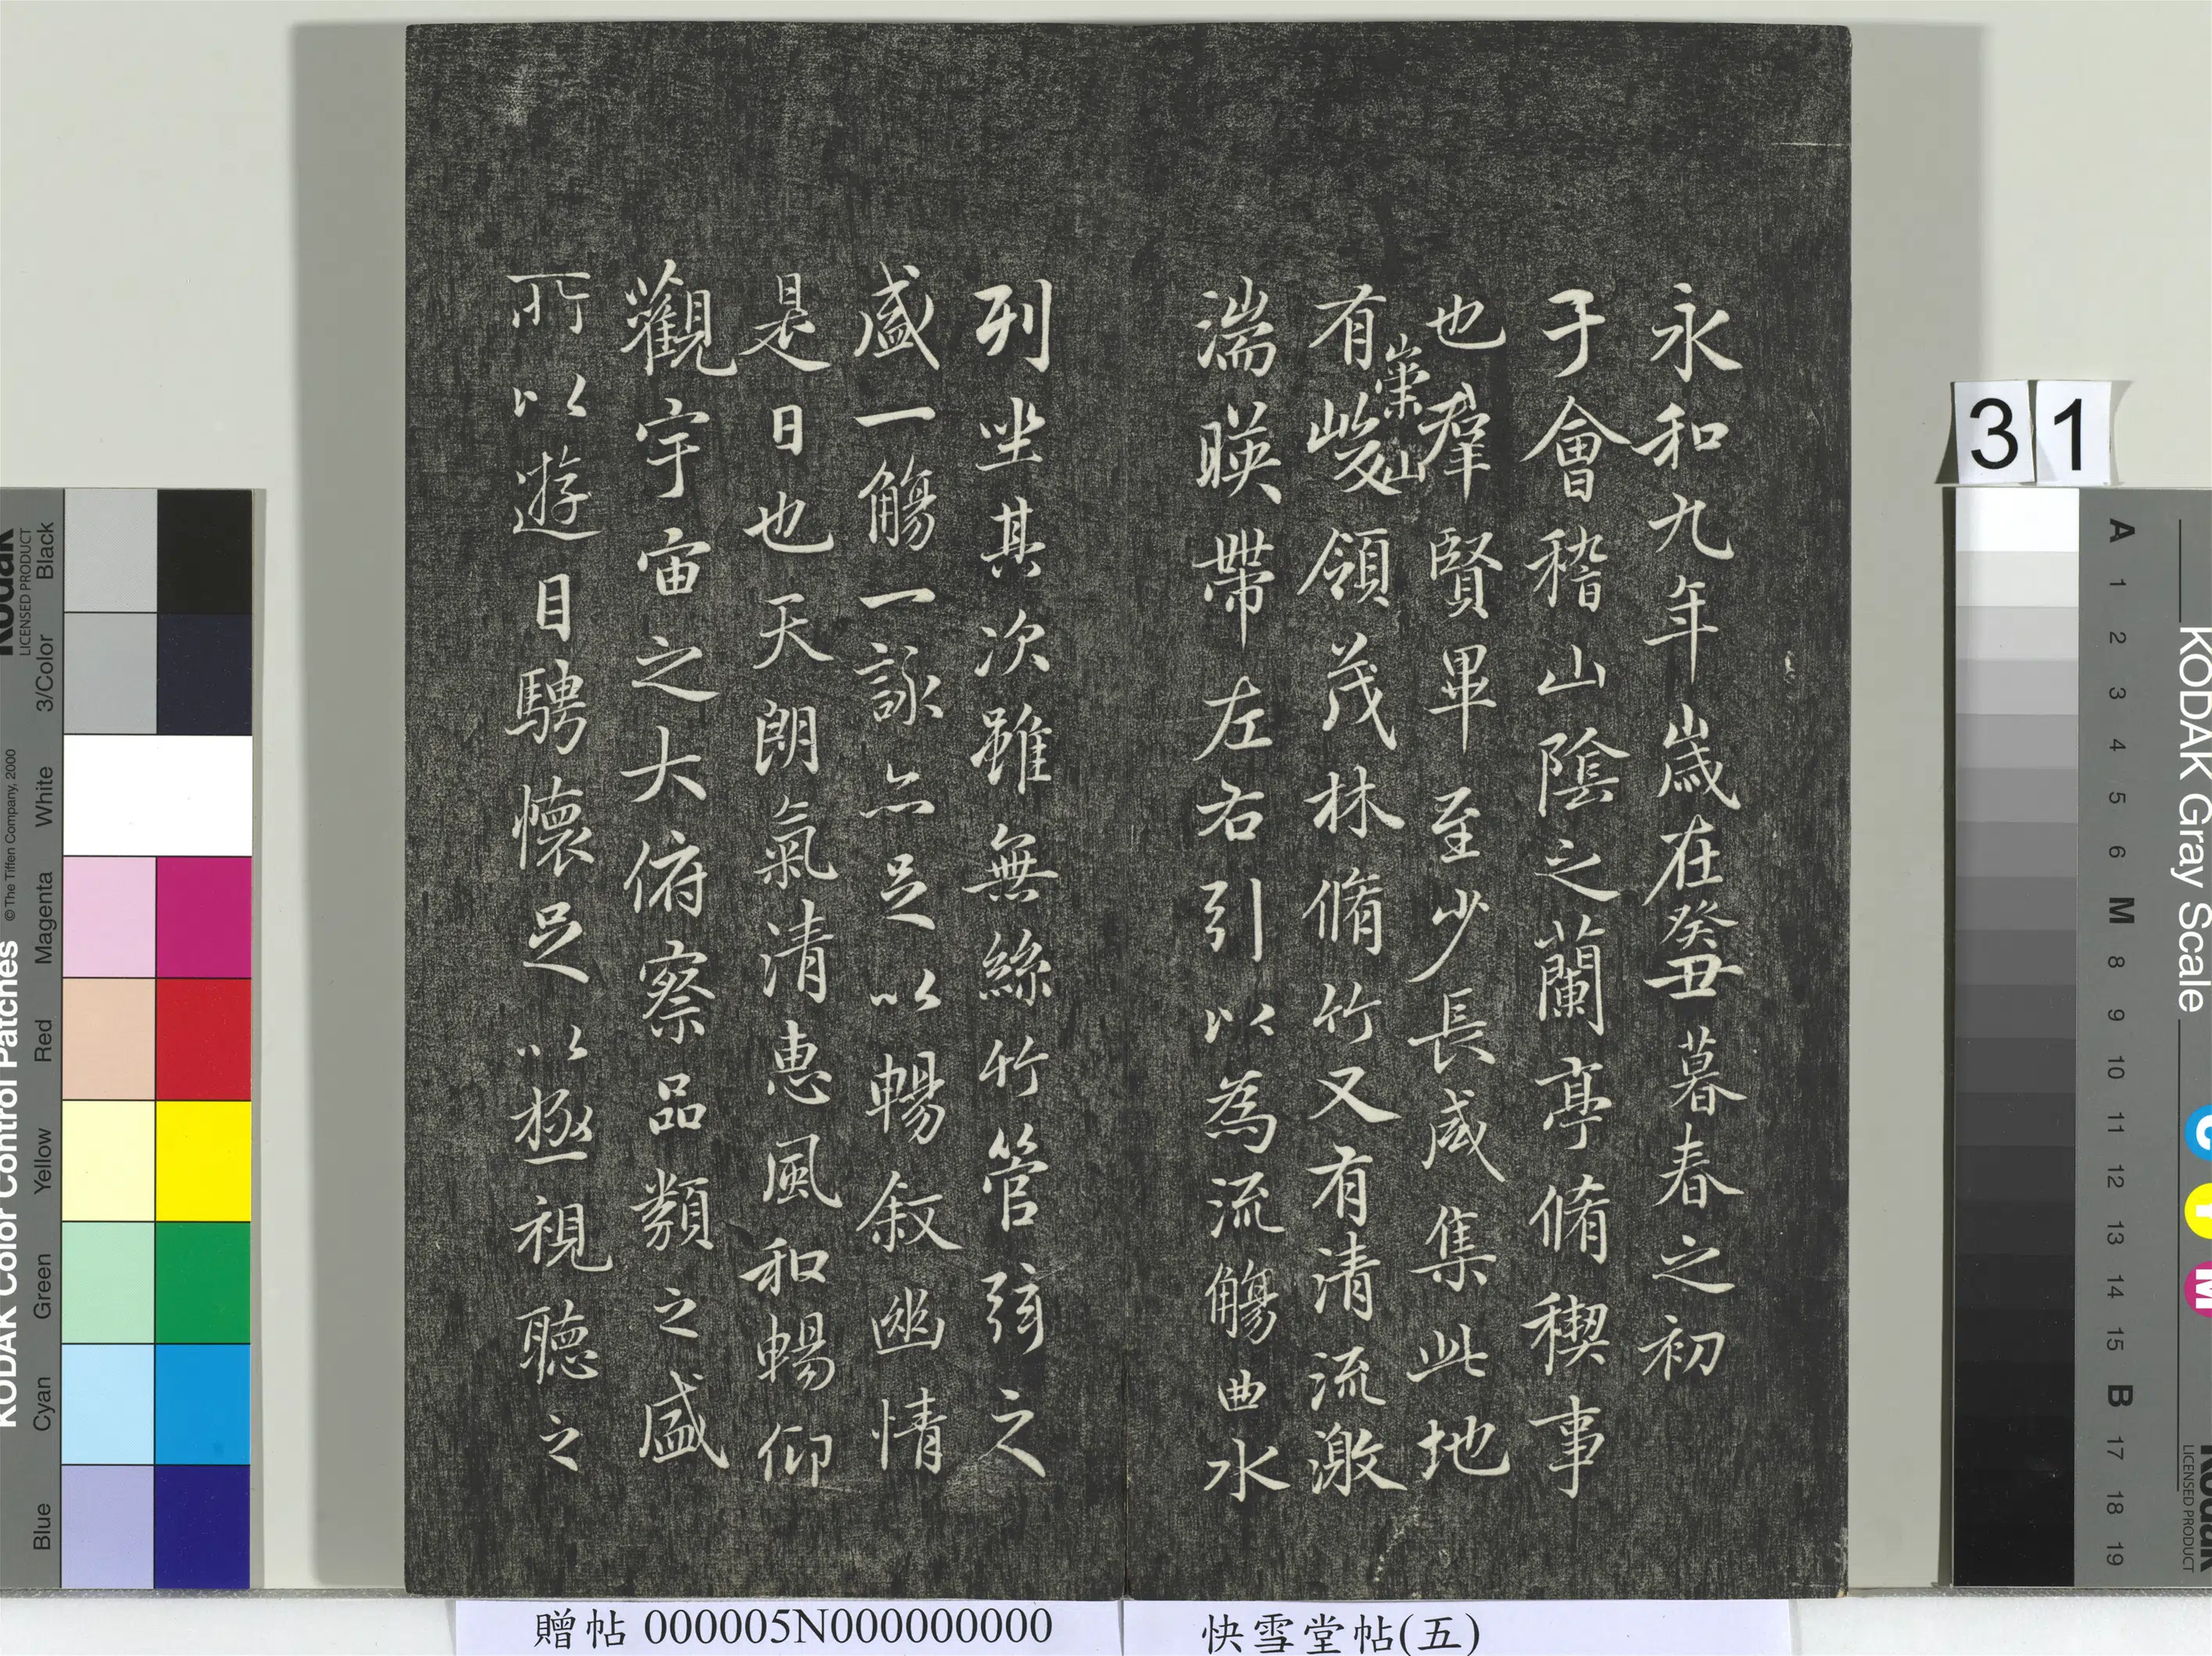 永和九年歲在癸丑暮春之初
于會稽山陰之蘭亭脩稧事
也羣賢畢至少長咸集此地
有崇山峻領茂林脩竹又有清流激
湍暎帶左右引以為流觴曲水
列坐其次雖無絲竹管弦之
盛一觴一詠亦足以暢叙幽情
是日也天朗氣清惠風和暢仰
觀宇宙之大俯察品類之盛
所以遊目騁懷足以極視聽之
31
贈帖 000005N000000000
快雪堂帖(五)
KODAK Color Control Patches
© The Tiffen Company, 2000
Kodak
LICENSED PRODUCT
Blue
Cyan
Green
Yellow
Red
Magenta
White
3/Color
Black
KODAK Gray Scale
A 1 2 3 4 5 6 M 8 9 10 11 12 13 14 15 B 17 18 19
C
Y
M
Kodak
LICENSED PRODUCT